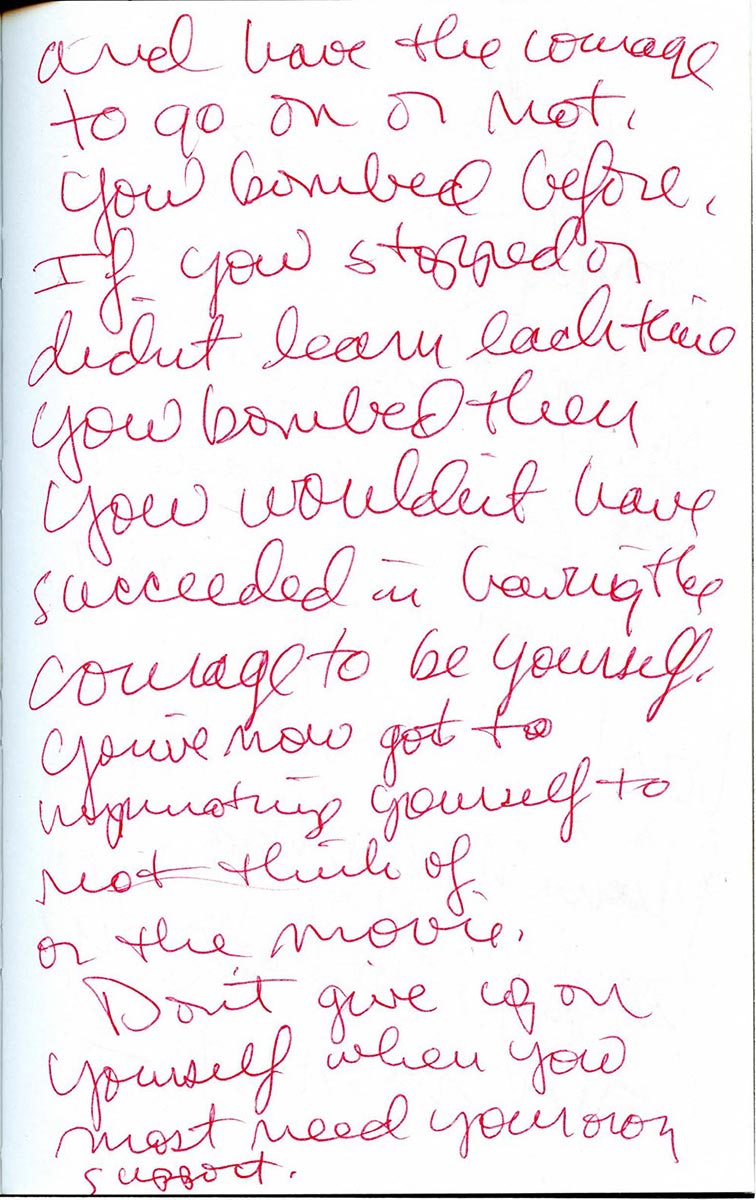 and have the courage
to go on or not.
You bombed before.
If you stopped or
didn't learn each time
you bombed then
you wouldn't have
succeeded in having the
courage to be yourself.
You've now got to
yourself to
not think of
or the movie.
Don't give up on
yourself when you
most need your own
support.